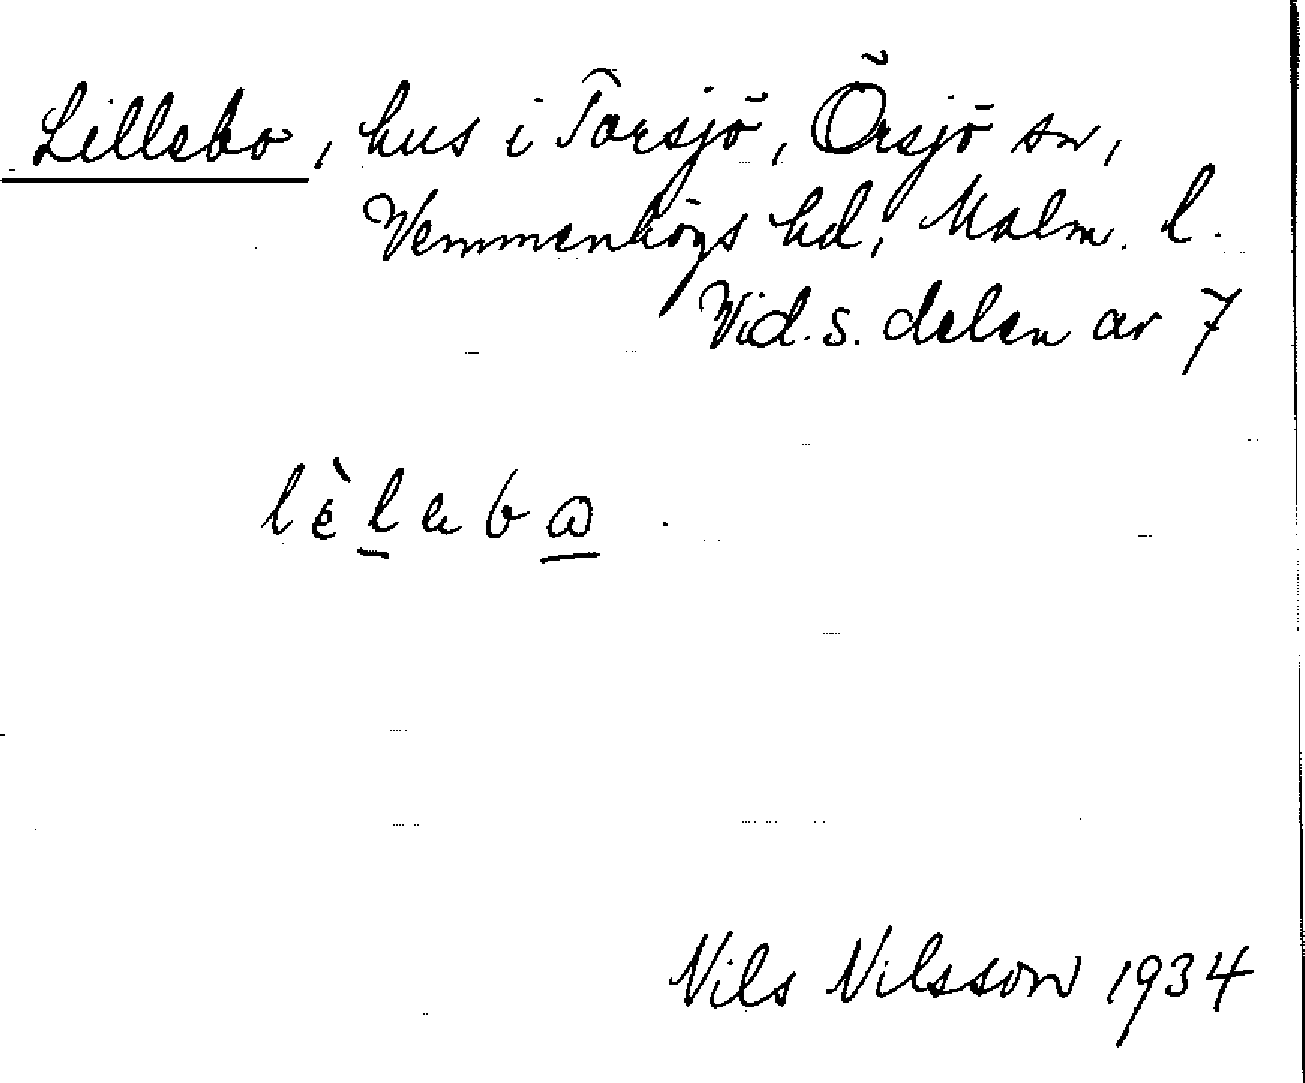 Lillebo, hus i Torsjö, Örsjö sn,
Vemmenhögs hd, Malm. l.
Vid s. delen av 7
lèlebω
Nils Nilsson 1934